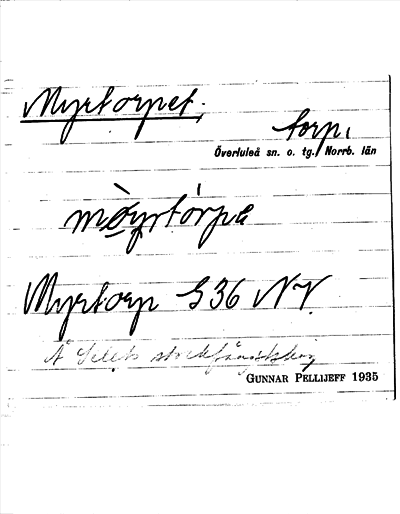 Myrtorpet;
torp,
Överluleå sn. o. tg. Norrb. län
mỳrtórpa
Myrtorp G36 NV.
Å Selets
GUNNAR PELLIJEFF 1935